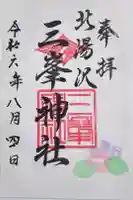 奉拝
北湯沢
三峯神社
令和六年八月四日